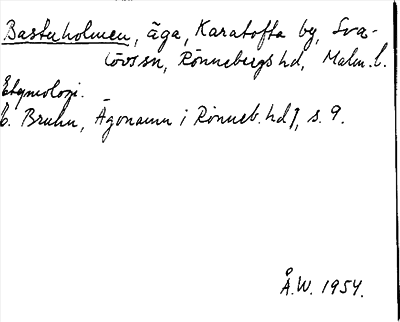 Basterholmen, äga, Karatofta by, Sva-
lövs sn, Rönnebergs hd, Malm. l.
Etymologi.
B. Bruhn, Ägonamn i Rönneb. hd I, s. 9.
Å.W. 1954.